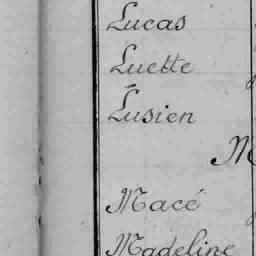 Lucas
Luette
Lusien
M
Macé
Madeline